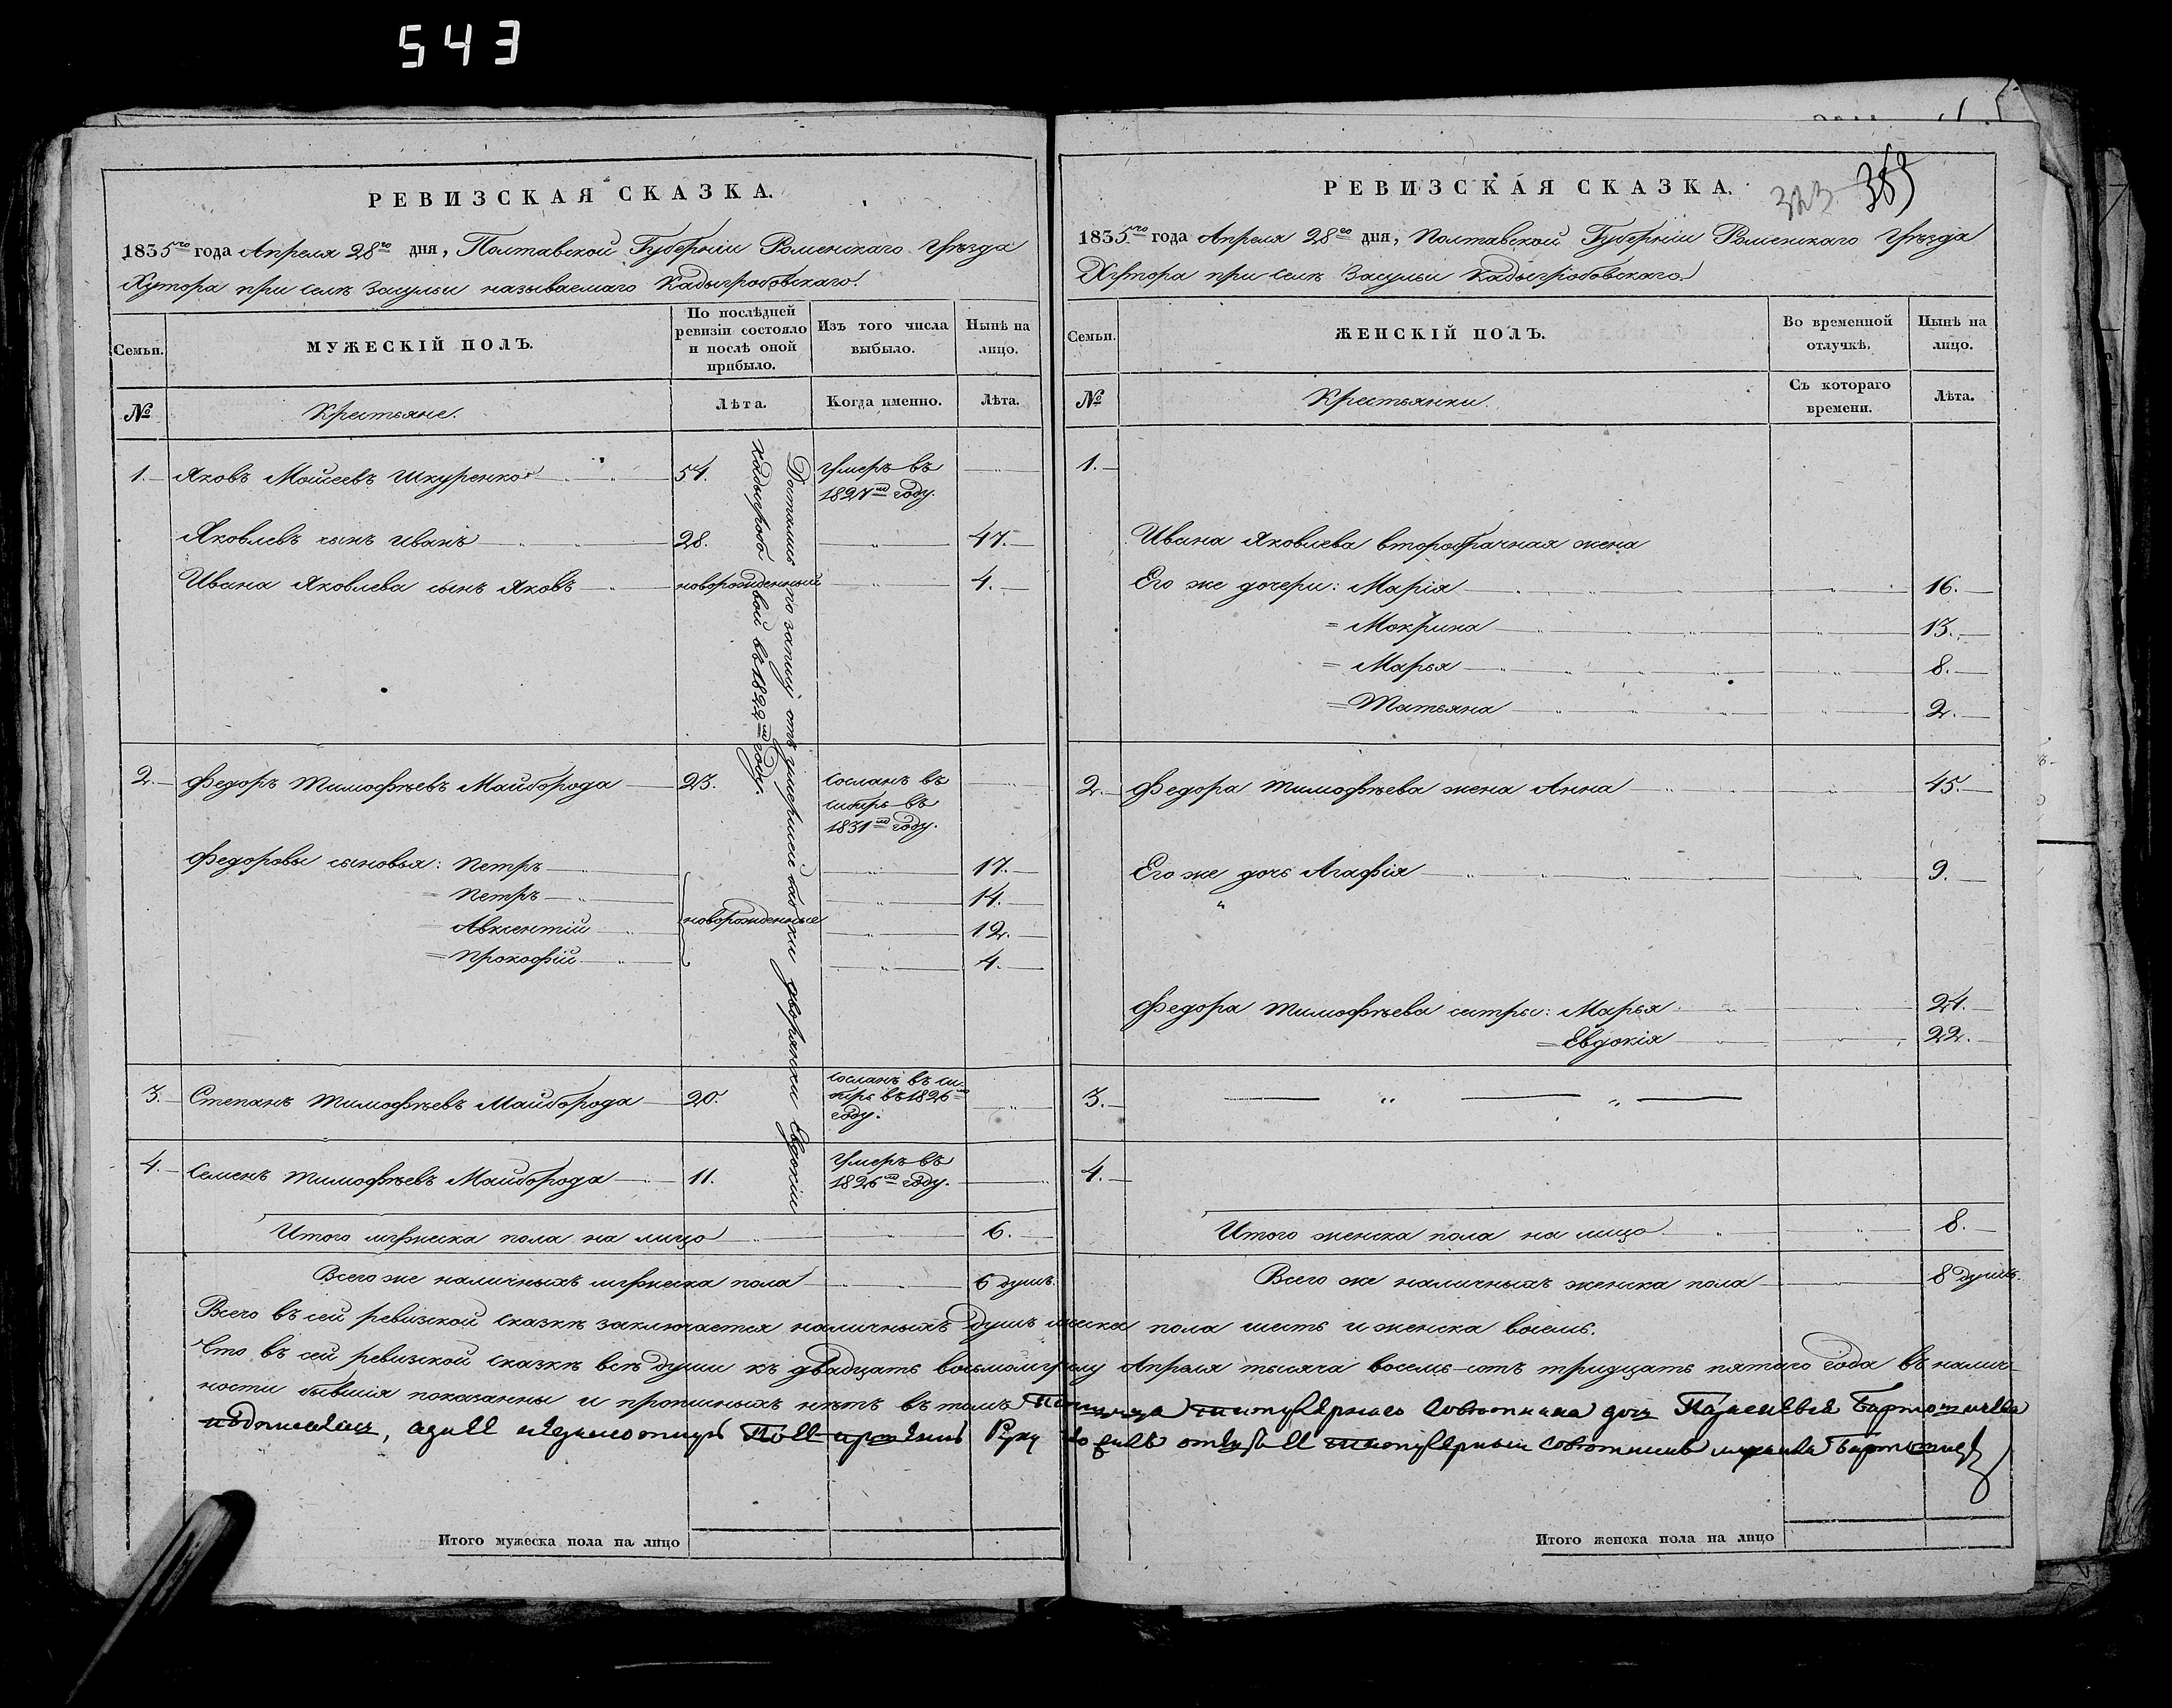 543
РЕВИЗСКАЯ СКАЗКА.
1835го года Апреля 28го дня, Полтавской Губерніи Роменскаго Уѣзда
Хутора при селѣ Засульи называемаго Кадыгробовскаго.
Семьи.
МУЖЕСКІЙ ПОЛЪ.
По послѣдней ревизіи состояло и послѣ оной прибыло.
Изъ того числа выбыло.
Нынѣ на лицо.
№
Крестьяне.
Лѣта.
Когда именно.
Лѣта.
1. Яковъ Моисеевъ Шкуренко 54. Умеръ въ
1827мъ году.
Яковлевъ сынъ Иванъ 28. 47.
Ивана Яковлева сынъ Яковъ новорожденный 4.
Достались по запису отъ умершей бабки дворянки Евдокіи
Кадыгробовой въ 1822мъ году.
2. Федоръ Тимофѣевъ Майборода 23. Сосланъ въ
сибирь въ
1831мъ году.
Федоровы сыновья: Петръ 17.
= Петръ 14.
Авксентій новорожденные 12.
= Прокофій 4.
3. Степанъ Тимофѣевъ Майборода 20. Сосланъ въ си-
бирь въ 1826мъ
году.
4. Семенъ Тимофѣевъ Майборода 11. Умеръ въ
1826мъ году.
Итого мужеска пола на лицо 6.
Всего же наличныхъ мужеска пола 6 душъ.
РЕВИЗСКАЯ СКАЗКА.
323. 359
1835го года Апреля 28го дня, Полтавской Губерніи Роменскаго Уѣзда
Хутора при селѣ Засульи Кадыгробовскаго
Семьи.
ЖЕНСКІЙ ПОЛЪ.
Во временной отлучкѣ.
Нынѣ на лицо.
№
Крестьянки
Съ котораго времени.
Лѣта.
1.
Ивана Яковлева второбрачная жена
Его же дочери: Марія 16.
= Мокрина 13.
= Марья 8.
= Татьяна 2.
2. Федора Тимофѣева жена Анна 45.
Его же дочь Агафія 9.
Федора Тимофѣева сестры: Марья 24.
= Евдокія 22.
3.
4.
Итого женска пола на лицо 8.
Всего же наличныхъ женска пола 8 душъ.
Всего въ сей ревизской сказкѣ заключается наличныхъ душъ мужеска пола шесть и женска восемь.
Что въ сей ревизской сказкѣ всѣ души къ двадцать восьмому числу Апреля тысяча восемь сотъ тридцать пятаго года въ налич-
ности бывшія показанны и прописныхъ нѣтъ въ томъ титулярнаго Советника дочь
титулярный Советникъ
Итого мужеска пола на лицо
Итого женска пола на лицо